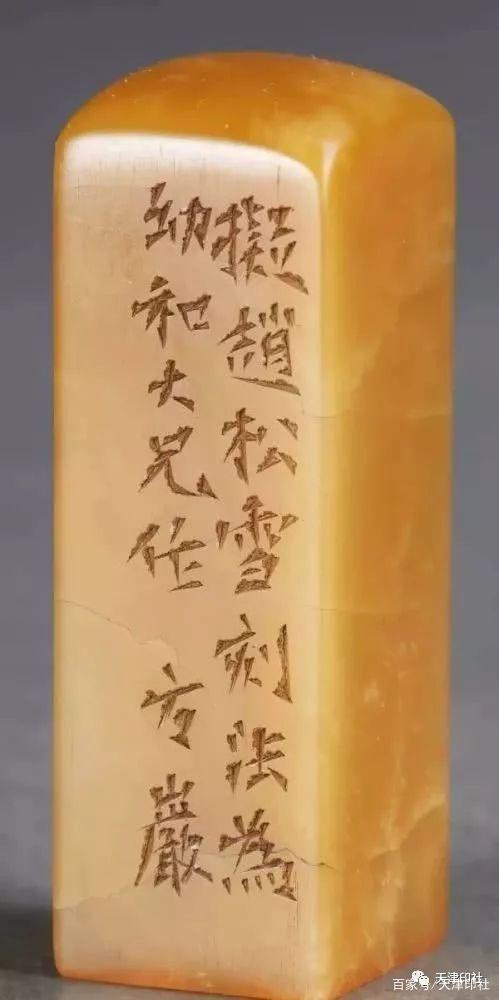 擬趙松雪刻法為
幼和大兄作 方巖
天津印社
百家号/天津印社